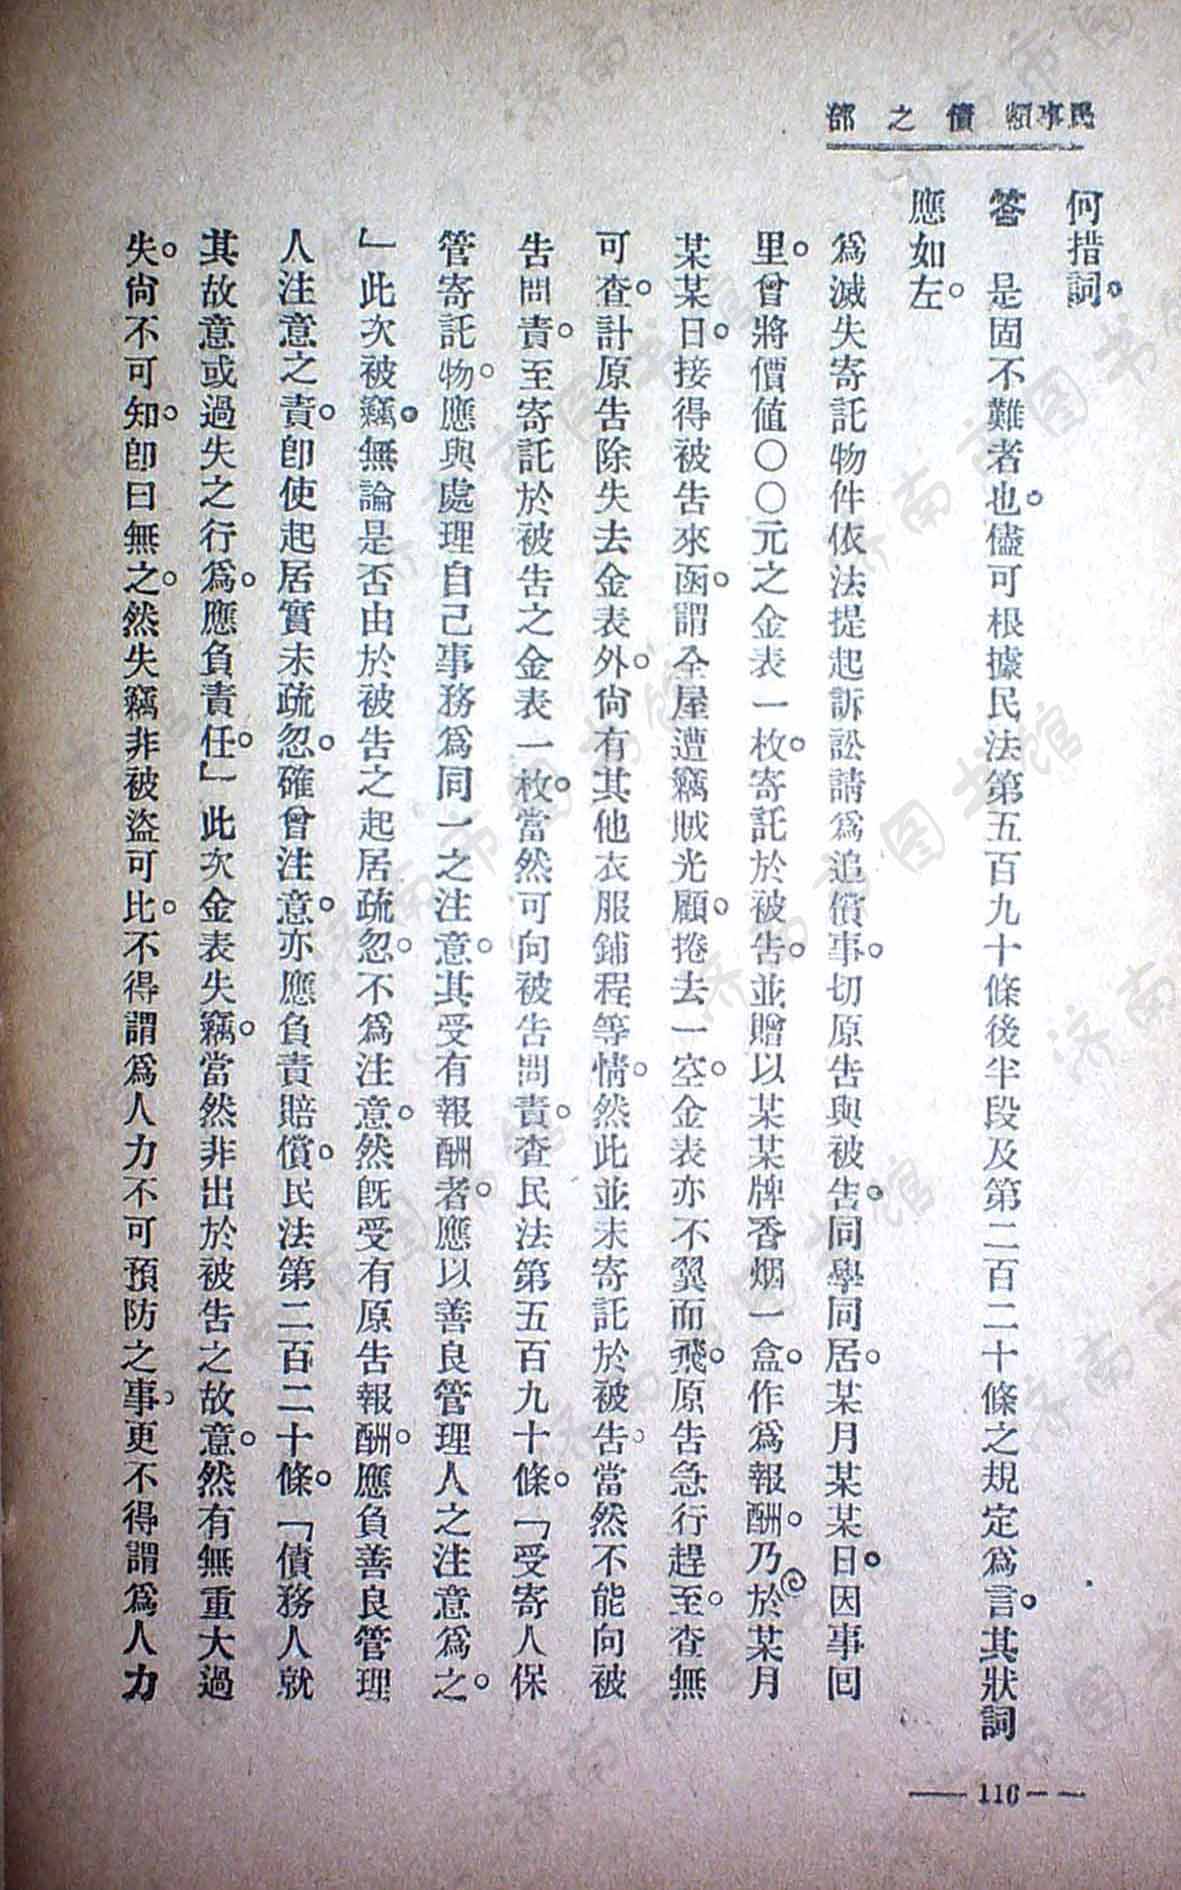 民事類 債之部
何措詞。
答　是固不難者也。儘可根據民法第五百九十條後半段及第二百二十條之規定爲言。其狀詞
應如左。
爲滅失寄託物件依法提起訴訟請爲追償事。切原告與被告。同學同居。某月某某日。因事回
里。曾將價值〇〇元之金表一枚。寄託於被告。並贈以某某牌香烟一盒。作爲報酬。乃於某月
某某日。接得被告來函。謂全屋遭竊賊光顧。捲去一空。金表亦不翼而飛。原告急行趕至。查無
可查。計原告除失去金表外。尙有其他衣服鋪程等情。然此並未寄託於被告。當然不能向被
告問責。至寄託於被告之金表一枚。當然可向被告問責。查民法第五百九十條。「受寄人保
管寄託物。應與處理自己事務爲同一之注意。其受有報酬者。應以善良管理人之注意爲之。
」此次被竊。無論是否由於被告之起居疏忽。不爲注意。然旣受有原告報酬。應負善良管理
人注意之責。卽使起居實未疏忽。確曾注意。亦應負責賠償。民法第二百二十條。「債務人就
其故意或過失之行爲。應負責任。」此次金表失竊。當然非出於被告之故意。然有無重大過
失。尙不可知。卽曰無之。然失竊非被盜可比。不得謂爲人力不可預防之事。更不得謂爲人力
116
济南市图书馆